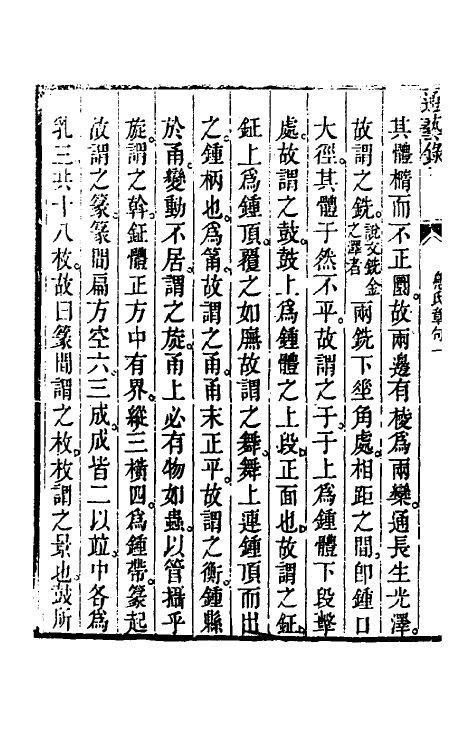 通藝錄
鳧氏章句一
其體橢而不正圜。故兩邊有棱爲兩欒。通長生光澤。
故謂之銑。說文銑金之澤者兩銑下垂角處。相距之間。卽鍾口
大徑。其體于然不平。故謂之于。于上爲鍾體下段擊
處。故謂之鼓。鼓上爲鍾體之上段。正面也。故謂之鉦。
鉦上爲鍾頂。覆之如廡。故謂之舞。舞上連鍾頂而出
之鍾柄也。爲筩。故謂之甬。甬末正平。故謂之衡。鍾縣
於甬。變動不居。謂之旋。甬上必有物如蟲。以管攝乎
旋。謂之幹。鉦體正方中有界。縱三橫四。爲鍾帶。篆起
故謂之篆。篆間扁方空六。三成。成皆二以竝。中各爲
乳三。共十八枚。故曰篆間謂之枚。枚謂之景也。鼓所